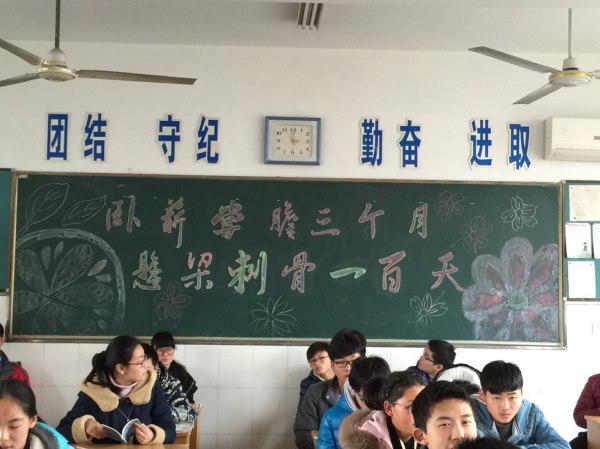 团结 守纪 勤奋 进取
卧薪尝胆三个月
悬梁刺骨一百天